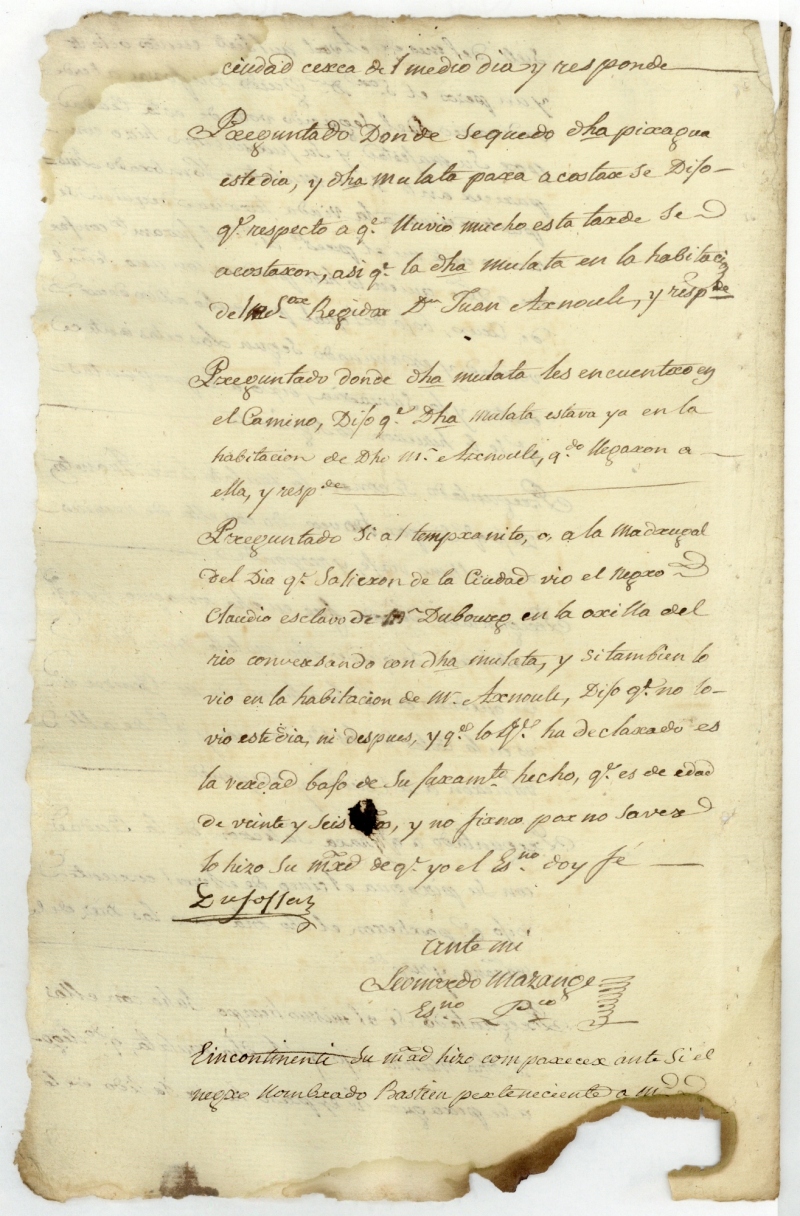 ciudad cerca del medio dia y responde
Preguntado Donde se quedo dha piragua
este dia, y dha mulata para acostarse Dijo
qe. respecto a qe. lluvio mucho esta tarde se
acostaron, asi qe. la dha mulata en la habitacion
del Sor Regidor Dn Juan Arnoul, y respde
Preguntado donde dha mulata les encuentro en
el Camino, Dijo qe. Dha mulata estava ya en la
habitacion de Dho Mr. Arnoul, qdo llegaron a
ella, y respde
Preguntado si al tempranito, o, a la Madrugal
del Dia qe. Salieron de la Ciudad vio el negro
Claudio esclavo de Mr Dubourg en la orilla del
rio conversando con dha mulata, y si tambien lo
vio en la habitacion de Mr. Arnoul, Dijo qe. no lo
vio este dia, ni despues, y qe. lo qe. ha declarado es
la verdad bajo de su juramto. hecho, qe. es de edad
de veinte y seis, y no firmo por no saver
lo hizo su mrd de qe. yo el Esno. doy fé
Dufossat
Ante mi
Leonardo Mazange
Esno Pco
Eincontinenti su mrd hizo comparecer ante si el
negro Nombrado Bastien perteneciente a Mr